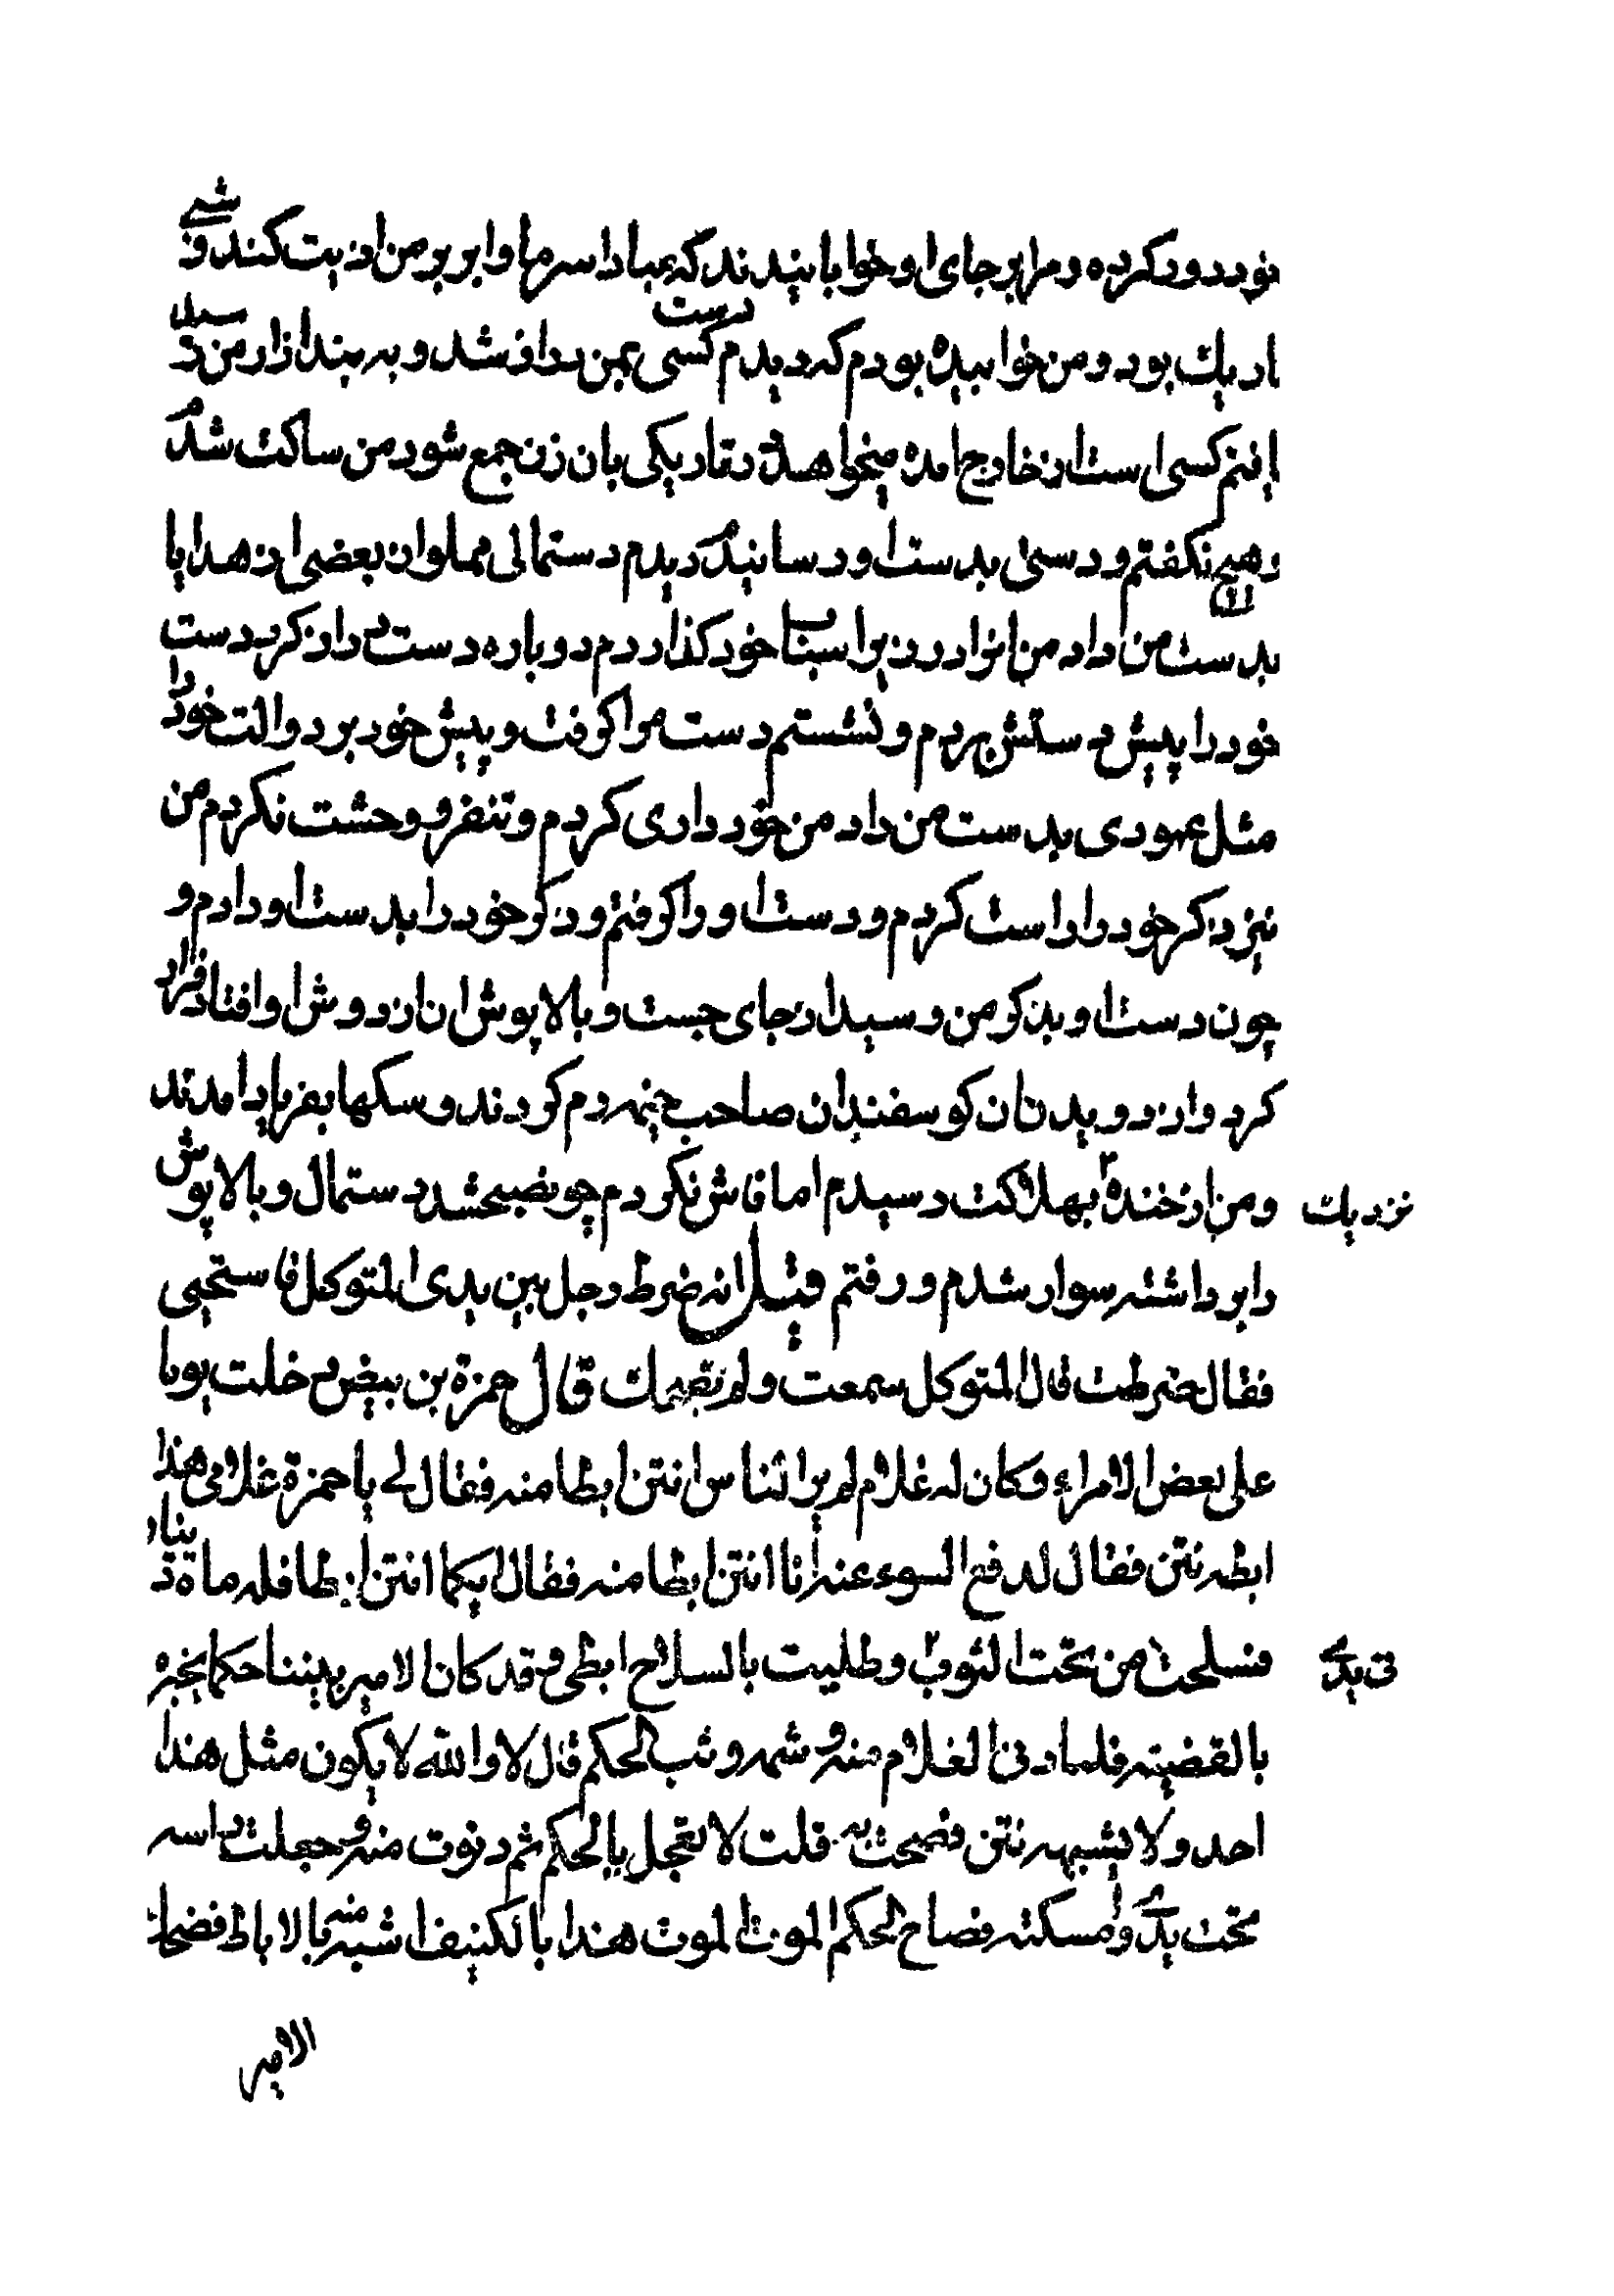 خود دور کرده و مرا بر جای او خوابانیدند که مبادا سرما و ابر بر من اذیت کند و شبی
تاریك بود و من خوابیده بودم که دیدم کسی بمن دراز شد و به بند ازار من دست رسید
یافتم کسی است از خارج امده میخواهد در تاریکی بان زن جمع شود من ساکت شدم
و هیچ نگفتم و دستی بدست او رسانیدم دیدم دستمالی مملو از بعضی از هدایا
بدست من داد من انرا در زیر اسباب خود گذاردم دوباره دست دراز کرد دست
خود را پیش دستش بردم و نشستم دست مرا گرفت و پیش خود برد و الت خود را
مثل عمودی بدست من داد من خودداری کردم و تنفر و وحشت نکردم من
نیز ذکر خود را راست کردم و دست او را گرفتم و ذکر خود را بدست او دادم و
چون دست او بذکر من رسید از جای جست و بالاپوش ان از دوش او افتاد فرار
کرد و از دویدن ان گوسفندان صاحب خیمه رم کردند و سگها بفریاد امدند
و من از خنده بهلاکت رسیدم اما فاش نکردم چو صبح شد دستمال و بالاپوش
نزدیك
را برداشته سوار شدم و رفتم قیل انه ضرط رجل بین یدی المتوکل فاستحیی
فقال ضرطت قال المتوکل سمعت ولم تضرك قال حمزة بن بیض دخلت یوما
علی بعض الامراء وکان له غلام لم یر الناس انتن ابطا منه فقال لی یا حمزة غلامی هذا
ابطه نتن فقال لدفع السوء عنه انا انتن ابطا منه فقال ایکما انتن ابطا فله ماة دینار
فسلحت من تحت الثوب وطلیت بالسلاح ابطی وقد کان الامیر بیننا حکما یخبره
فی یدی
بالقضیته فلما دنی الغلام منه وشمه وثب الحکم قال لا والله لا یکون مثل هذا
احد ولا یشبهه نتن فصحت به قلت لا تعجل یا الحکم ثم دنوت منه وجعلت راسه
تحت یدی وامسکته فصاح الحکم الموت الموت هذا بالکنیف اشبه منه بالاباط فضحك
الامیر